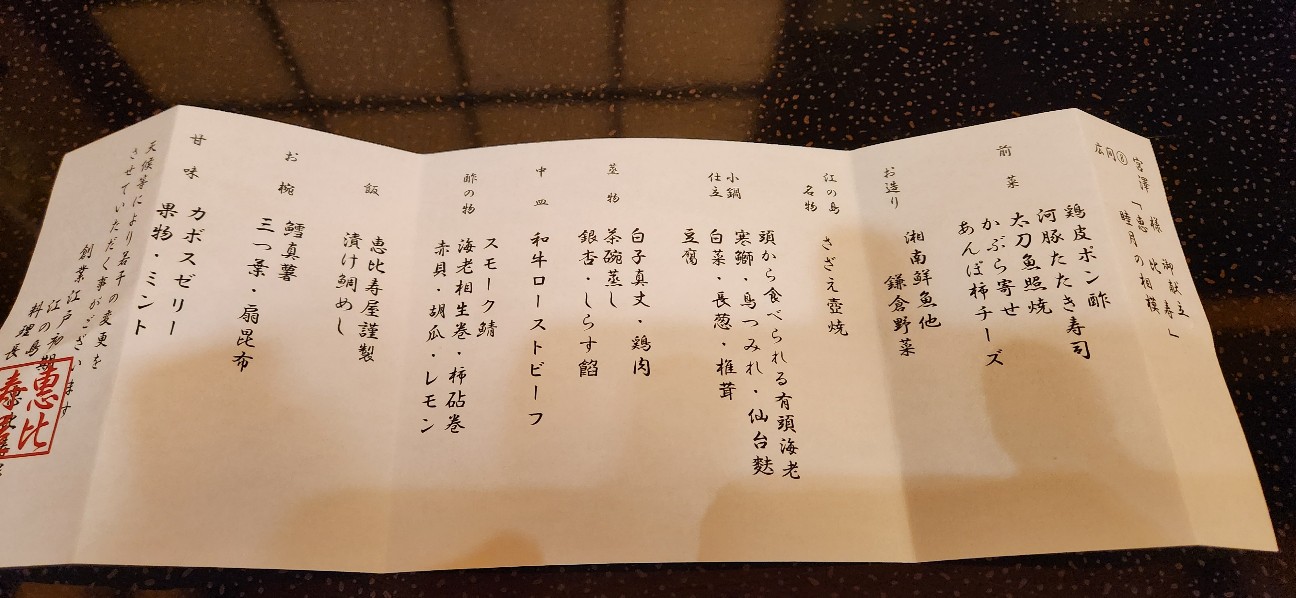 広間⑧
宮澤 様 御献立
「恵比寿」
睦月の相模
前菜
鶏皮ポン酢
河豚たたき寿司
太刀魚照焼
かぶら寄せ
あんぽ柿チーズ
お造り
湘南鮮魚他
鎌倉野菜
江の島
名物
さざえ壺焼
小鍋
仕立
頭から食べられる有頭海老
寒鰤・鳥つみれ・仙台麩
白菜・長葱・椎茸
豆腐
蒸物
白子真丈・鶏肉
茶碗蒸し
銀杏・しらす餡
中皿
和牛ローストビーフ
酢の物
スモーク鯖
海老相生巻・柿砧巻
赤貝・胡瓜・レモン
飯
恵比寿屋謹製
漬け鯛めし
お椀
鱈真薯
三つ葉・扇昆布
甘味
カボスゼリー
果物・ミント
天候等により若干の変更を
させていただく事がございます
創業江戸初期
江の島
料理長
恵比
寿